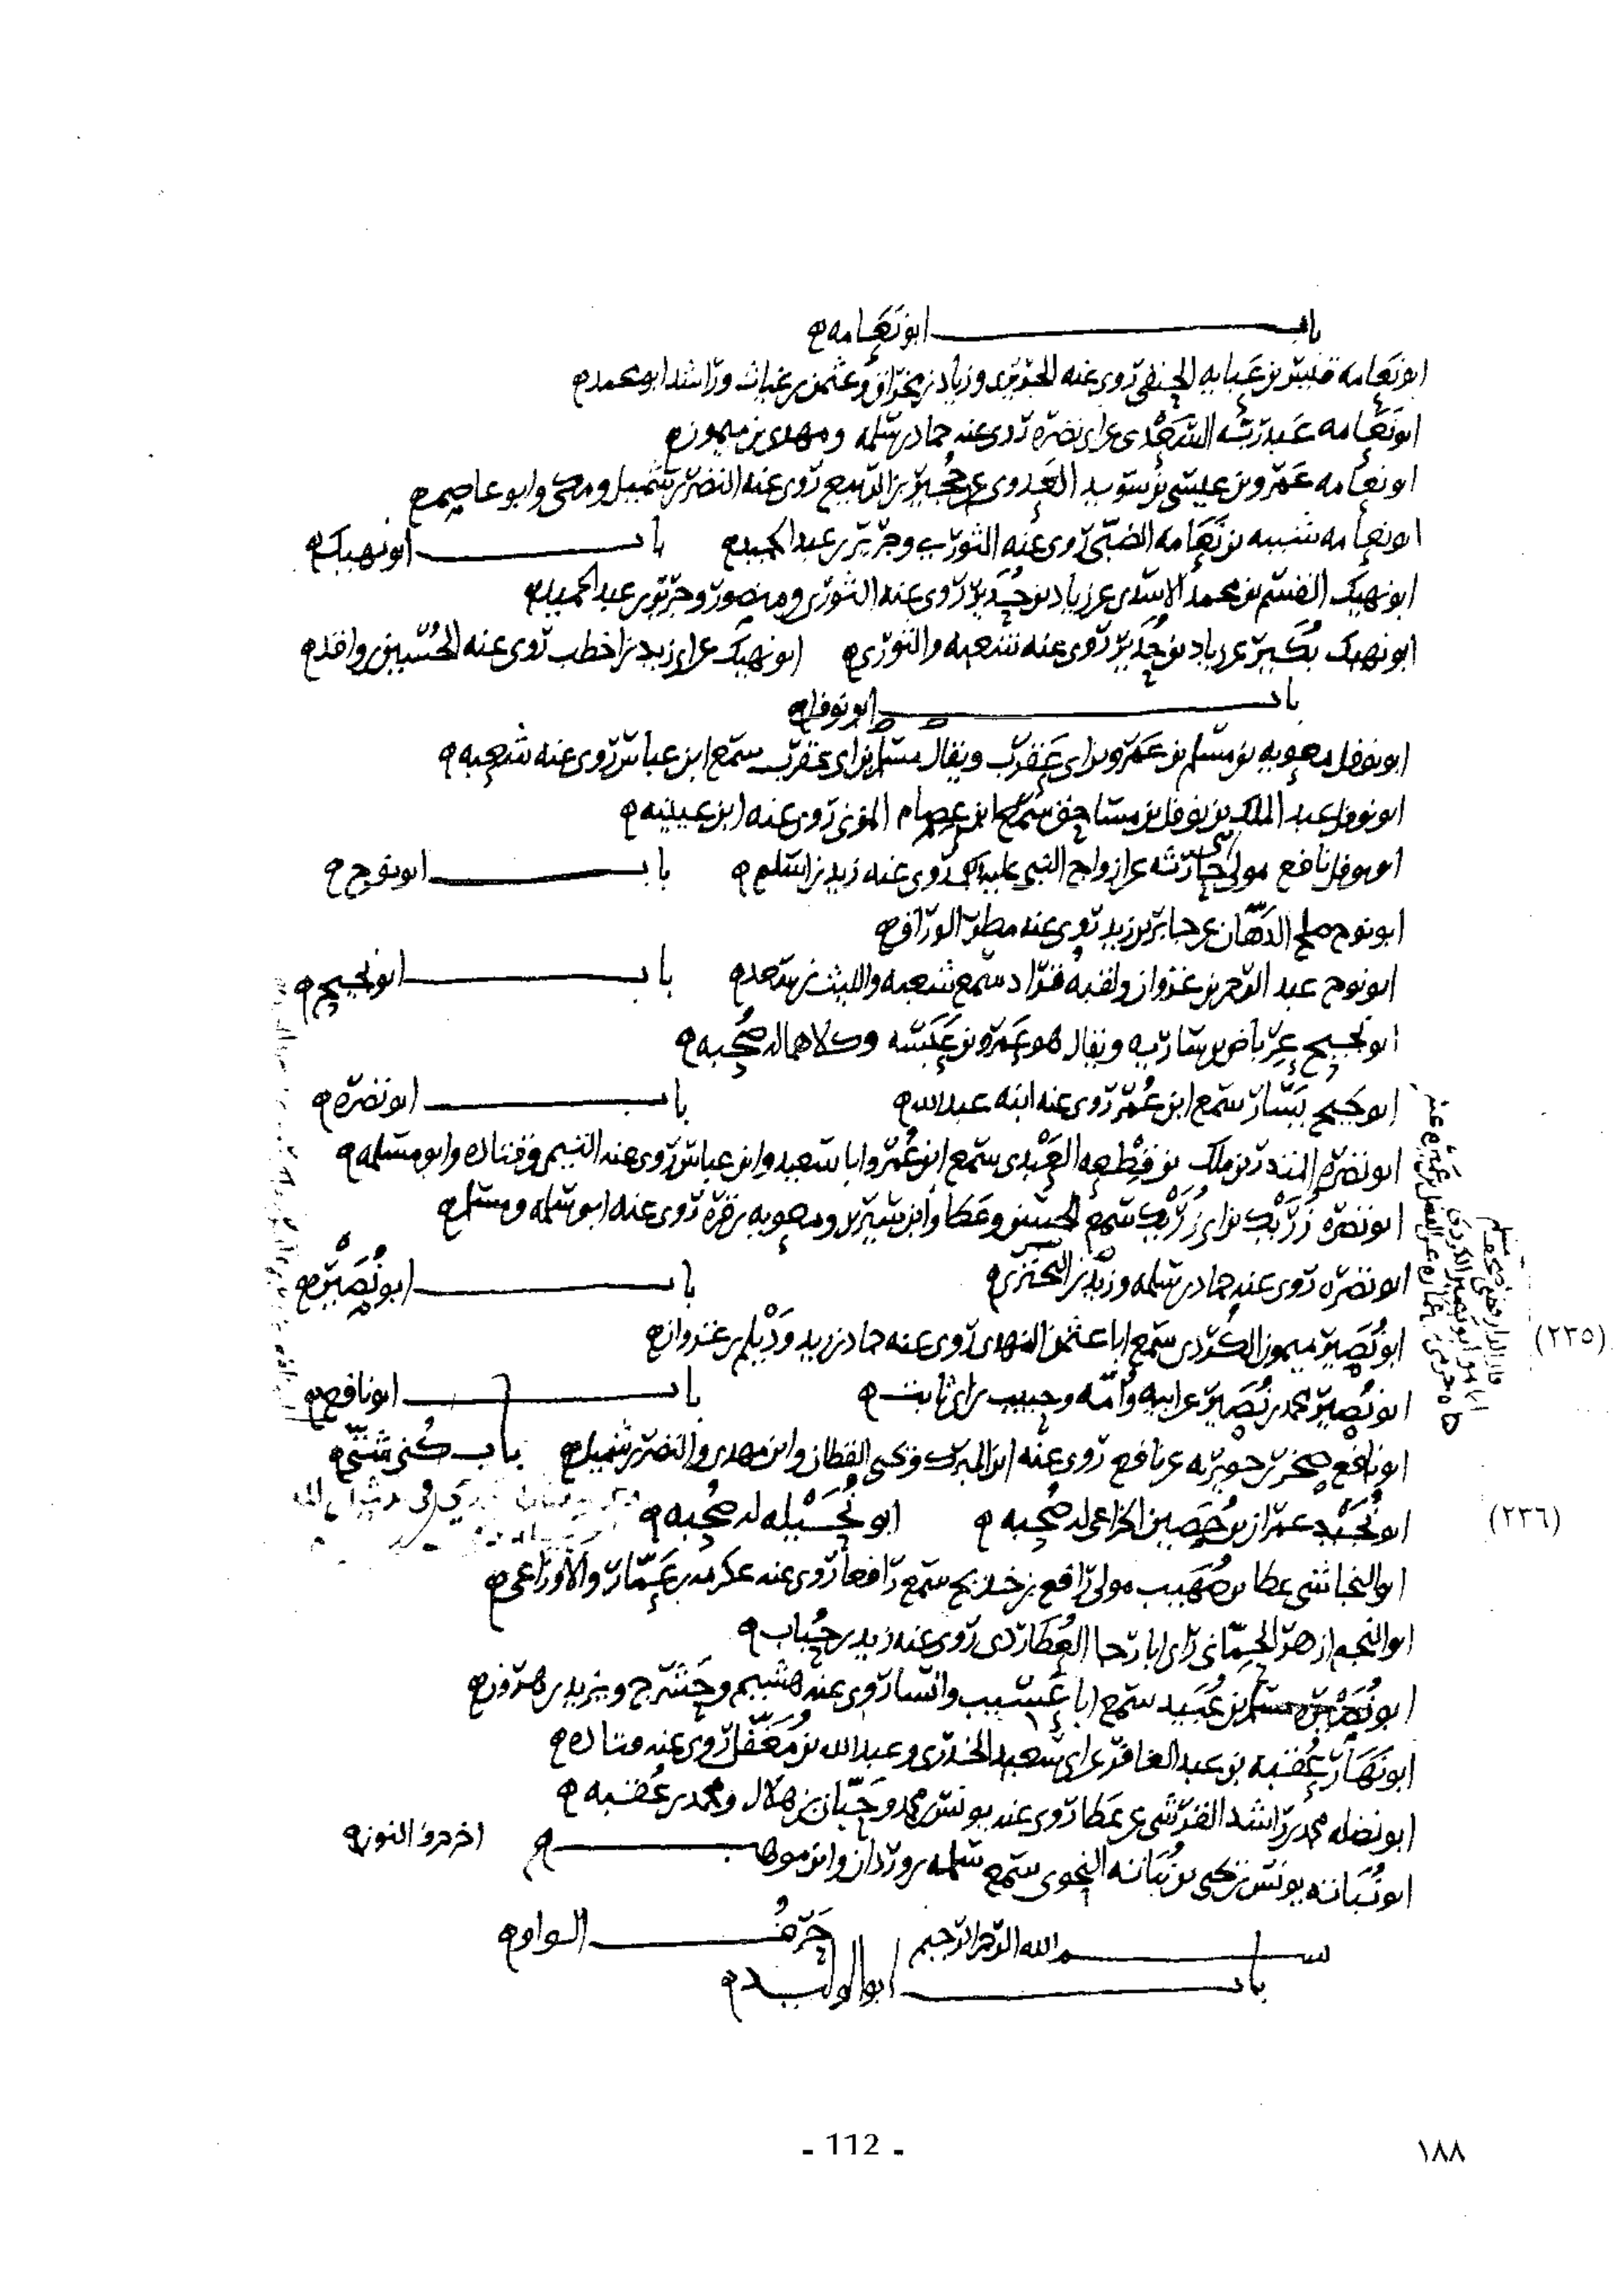 باب ابو نعامه
ابو نعامه قيس بن عبايه الحنفى روى عنه الجريرى وزياد بن مخراق وعثمن بن غياث وراشد ابو محمد
ابو نعامه عبد ربه السعدى عن ابى نضره روى عنه حماد بن سلمه ومهدى بن ميمون
ابو نعامه عمرو بن عيسى بن سويد العدوى عن حجير بن الربيع روى عنه النضر بن شميل ومكى وابو عاصم
ابو نعامه شيبه بن نعامه الضبى روى عنه الثورى وجرير بن عبد الحميد باب ابو نهيك
ابو نهيك القسم بن محمد الاسدى عن زياد بن حدير روى عنه الثورى ومنصور وجرير بن عبد الحميد
ابو نهيك بكير عن زياد بن حدير روى عنه شعبه والثورى ابو نهيك عن ابى زيد بن اخطب روى عنه الحسين بن واقد
باب ابو نوفل
ابو نوفل معويه بن مسلم بن عمرو بن ابى عقرب ويقال مسلم بن ابى عقرب سمع ابن عباس روى عنه شعبه
ابو نوفل عبد الملك بن نوفل بن مساحق سمع ابن عصام المزنى روى عنه ابن عيينه
ابو نوفل نافع مولى حارثه عن ازواج النبى عليه روى عنه زيد بن اسلم باب ابو نوح
ابو نوح صلح الدهان عن جابر بن زيد روى عنه مطر الوراق
ابو نوح عبد الرحمن بن غزوان ولقبه قراد سمع شعبه والليث بن سعد باب ابو نجيح
ابو نجيح عرباض بن ساريه ويقال هو عمرو بن عبسه وكلاهما له صحبه
ابو نجيح يسار سمع ابن عمر روى عنه ابنه عبد الله باب ابو نضره
ابو نضره المنذر بن ملك بن قطعه العبدى سمع ابن عمر وابا سعيد وابن عباس روى عنه التيمى وقتاده وابو مسلمه
ابو نضره زريك بن ابى زريك سمع الحسن وعطا وابن سيرين ومعويه بن قره روى عنه ابو سلمه ومسلم
ابو نضره روى عنه حماد بن سلمه وزيد بن باب ابو نصير
ابو نصير ميمون الكردى سمع ابا عثمن النهدى روى عنه حماد بن زيد وديلم بن غزوان
(٢٣٥)
ابو نصير محمد بن نصير عن ابيه وامه وحبيب بن ابى ثابت باب ابو نافع
ابو نافع صخر بن جويريه عن نافع روى عنه ابن المبرك ويحيى القطان وابن مهدى والنضر بن شميل باب كنى شتى
ابو نجيد عمران بن حصين الخزاعى له صحبه ابو نجيله له صحبه
(٢٣٦)
ابو النجاشى عطا بن صهيب مولى رافع بن خديج سمع رافعا روى عنه عكرمه بن عمار والاوزاعى
ابو النجم ازهر الحمانى راى ابا رجا العطاردى روى عنه زيد بن حباب
ابو نصيره مسلم بن عبيد سمع ابا عسيب وانسا روى عنه هشيم وحشرج ويزيد بن هرون
ابو نهار عقبه بن عبد الغافر عن ابى سعيد الخدرى وعبد الله بن مغفل روى عنه قتاده
ابو نضله محمد بن راشد القرشى عن عطا روى عنه يونس بن محمد وحبان بن هلال ومحمد بن عقبه
ابو نباته يونس بن يحيى بن نباته النحوى سمع سلمه بن وردان وابن موهب اخر حرف النون
بسم الله الرحمن الرحيم حرف الواو
باب ابو الوليد
- 112 -
١٨٨